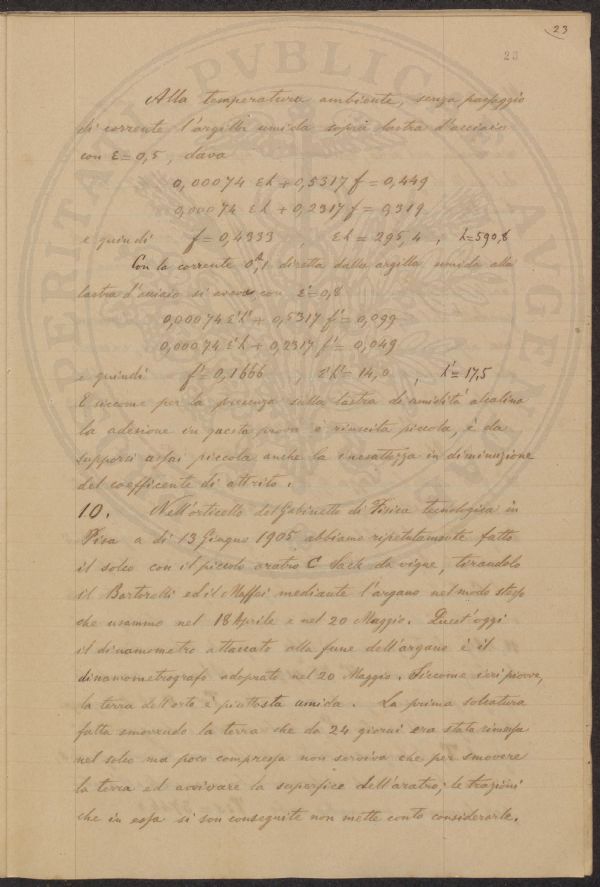 23
23
Alla temperatura ambiente, senza passaggio
di corrente l'argilla umida sopra lastra d'acciaio
con ε=0,5, dava
0,00074 εh + 0,5317 f = 0,449
0,00074 εh + 0,2317 f = 0,319
e quindi f = 0,4333 , εh = 295,4 , h = 590,8
Con la corrente 0ᴬ,1 diretta dalla argilla umida alla
lastra d'acciaio si aveva, con ε' = 0,8
0,00074 ε'h' + 0,5317 f' = 0,099
0,00074 ε'h + 0,2317 f' = 0,049
e quindi f' = 0,1666 , ε'h' = 14,0 , h' = 17,5
E siccome per la presenza sulla lastra di umidità alcalina
la adesione in questa prova è riuscita piccola, è da
supporsi assai piccola anche la inesattezza in diminuzione
del coefficente di attrito.
10. Nell'orticello del Gabinetto di Fisica tecnologica in
Pisa a dì 13 Giugno 1905 abbiamo ripetutamente fatto
il solco con il piccolo aratro C Sack da vigne, tirandolo
il Bertorelli ed il Maffei mediante l'argano nel modo stesso
che usammo nel 18 Aprile e nel 20 Maggio. Quest'oggi
il dinamometro attaccato alla fune dell'argano è il
dinamometrografo adoprato nel 20 Maggio. Siccome ieri piovve,
la terra dell'orto è piuttosto umida. La prima solcatura
fatta smovendo la terra che da 24 giorni era stata rimessa
nel solco ma poco compressa non serviva che per smovere
la terra ed avvivare la superfice dell'aratro; le trazioni
che in essa si son conseguite non mette conto considerarle.
PERITAT PVBLICAE AVGEN